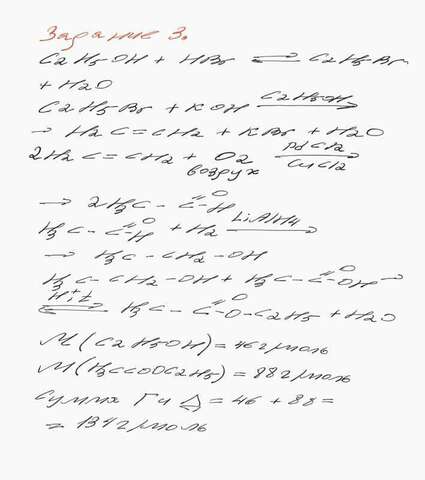 Задание 3.
C2H5OH + HBr ⇌ C2H5-Br
+ H2O
C2H5-Br + KOH C2H5OH→
→ H2C=CH2 + KBr + H2O
2H2C=CH2 + O2 воздух PdCl2 CuCl2→
→ 2H3C-C(=O)-H
H3C-C(=O)-H + H2 LiAlH4→
→ H3C-CH2-OH
H3C-CH2-OH + H3C-C(=O)-OH →
H+, t ⇌ H3C-C(=O)-O-C2H5 + H2O
M(C2H5OH) = 46 г/моль
M(H3CCOOC2H5) = 88 г/моль
Сумма Г и Д = 46 + 88 =
= 134 г/моль